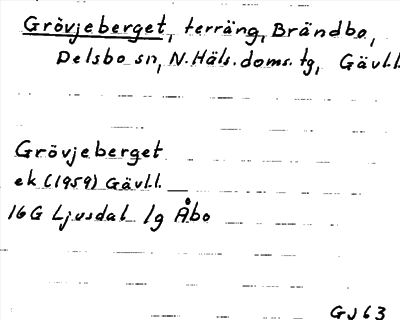 Grövjeberget, terräng, Brändbo,
Delsbo sn, N. Häls. doms. tg, Gävl.l.
Grövjeberget
ek (1959) Gävl.l.
16 G Ljusdal lg Åbo
GJ 63